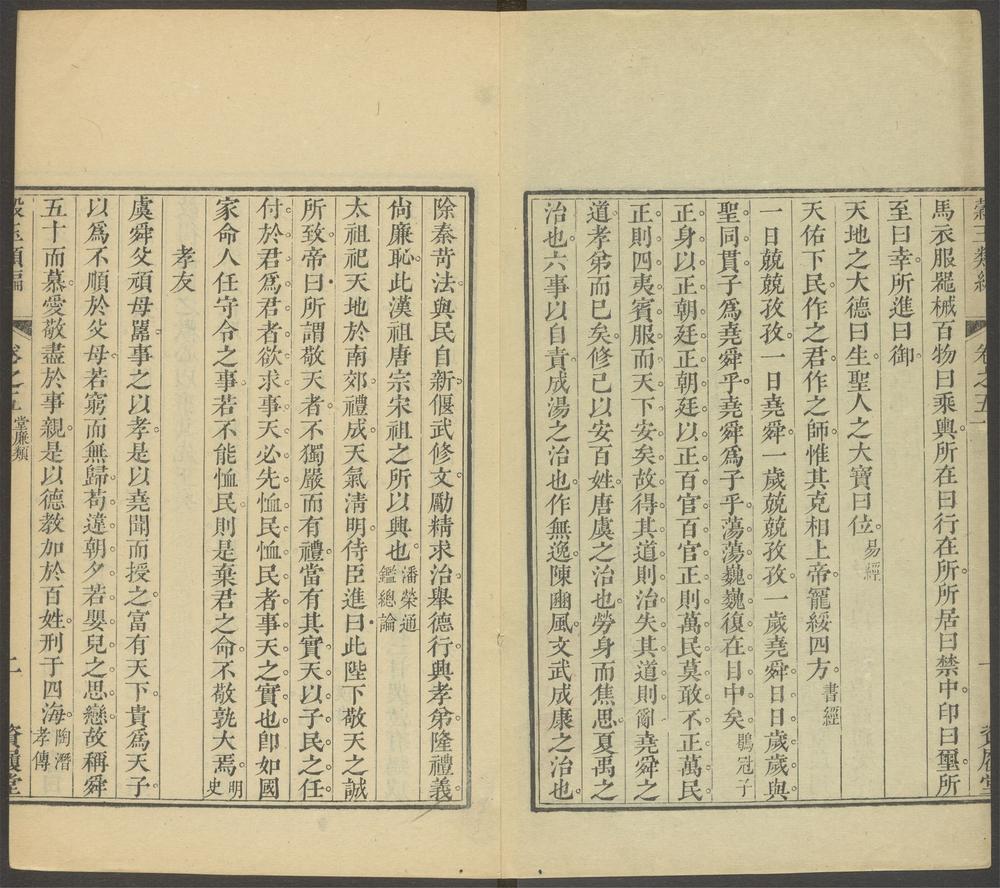 卷之五
馬衣服器械百物曰乘輿所在曰行在所所居曰禁中印曰璽所
至曰幸所進曰御
天地之大德曰生聖人之大寶曰位易經
天佑下民作之君作之師惟其克相上帝寵綏四方書經
一日兢兢孜孜一日堯舜一歲兢兢孜孜一歲堯舜日日歲歲與
聖同貫子爲堯舜乎堯舜爲子乎蕩蕩巍巍復在日中矣鶡冠子
正身以正朝廷正朝廷以正百官百官正則萬民莫敢不正萬民
正則四夷賓服而天下安矣故得其道則治失其道則亂堯舜之
道孝弟而已矣修己以安百姓唐虞之治也勞身而焦思夏禹之
治也六事以自責成湯之治也作無逸陳豳風文武成康之治也
除秦苛法與民自新偃武修文勵精求治舉德行興孝弟隆禮義
尙廉恥此漢祖唐宗宋祖之所以興也潘榮通鑑總論
太祖祀天地於南郊禮成天氣淸明侍臣進曰此陛下敬天之誠
所致帝曰所謂敬天者不獨嚴而有禮當有其實天以子民之任
付於君爲君者欲求事天必先恤民恤民者事天之實也卽如國
家命人任守令之事若不能恤民則是棄君之命不敬孰大焉明史
孝友
虞舜父頑母嚚事之以孝是以堯聞而授之富有天下貴爲天子
以爲不順於父母若窮而無歸苟違朝夕若嬰兒之思戀故稱舜
五十而慕愛敬盡於事親是以德教加於百姓刑于四海陶潛孝傳
卷之五 堂廉類